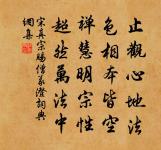 止觀心地法
色相本皆空
禪慧明宗性
超然萬法中
宋真宗賜僧澄詞典
網集